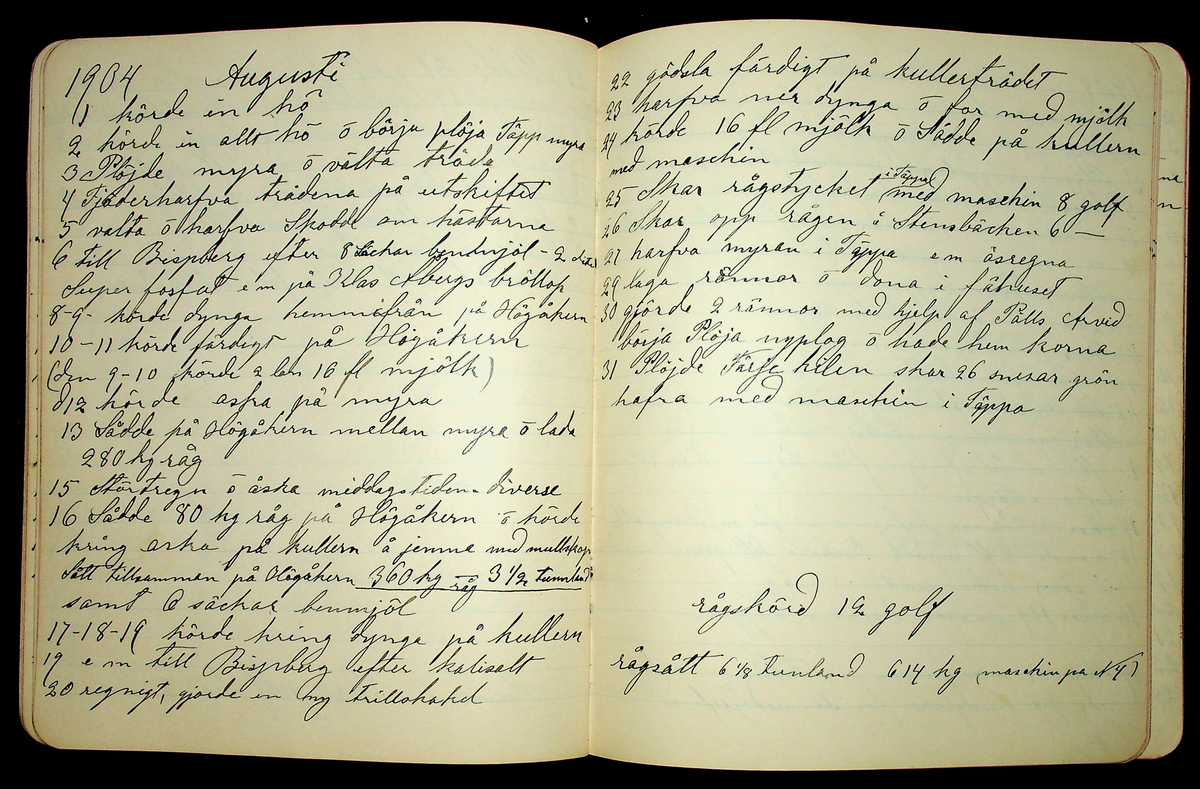 1904 Augusti
1 körde in hö
2 körde in allt hö ö börja plöja Täpp myra
3 Plöjde myra ö välta träda
4 Fjäderharfva trädena på utskiftet
5 välta ö harfva Skodde om hästarna
6 till Bispberg efter 8 säckar benmjöl - 2
Super fosfat e m på Klas Åbergs bröllop
8-9- körde dynga hemmifrån på Högåkern
10-11 körde färdigt på Högåkern
(den 9-10 körde 2 lass 16 fl mjölk)
d12 körde aska på myra
13 Sådde på Högåkern mellan myra ö lada
280 kg råg
15 Störtregn ö åska middagstiden - diverse
16 Sådde 80 kg råg på Högåkern ö körde
kring aska på kullern å jemna med mullskopa
Sått tillsamman på Högåkern 360 kg råg 3 1/2 tunnland
samt 6 säckar benmjöl
17-18-19 körde kring dynga på kullern
19 e m till Bispberg efter kalisalt
20 regnigt, gjorde en ny trillskakel
22 gödsla färdigt på kullerträdet
23 harfva ner dynga ö for med mjölk
24 körde 16 fl mjölk ö Sådde på kullern
med maschin
25 Skar rågstycket i Täppa med maschin 8 golf
26 Skar opp rågen å Stensbäcken 6 —
27 harfva myran i Täppa e m ösregna
29 laga rännor ö dona i fähuset
30 gjorde 2 rännor med hjelp af Pålls Arvid
börja Plöja nyplog ö hade hem korna
31 Plöjde Färje kilen skar 26 snesar grön
hafra med maschin i Täppa
rågskörd 12 golf
rågsått 6 1/8 tunland 614 kg (maschin på N 4)